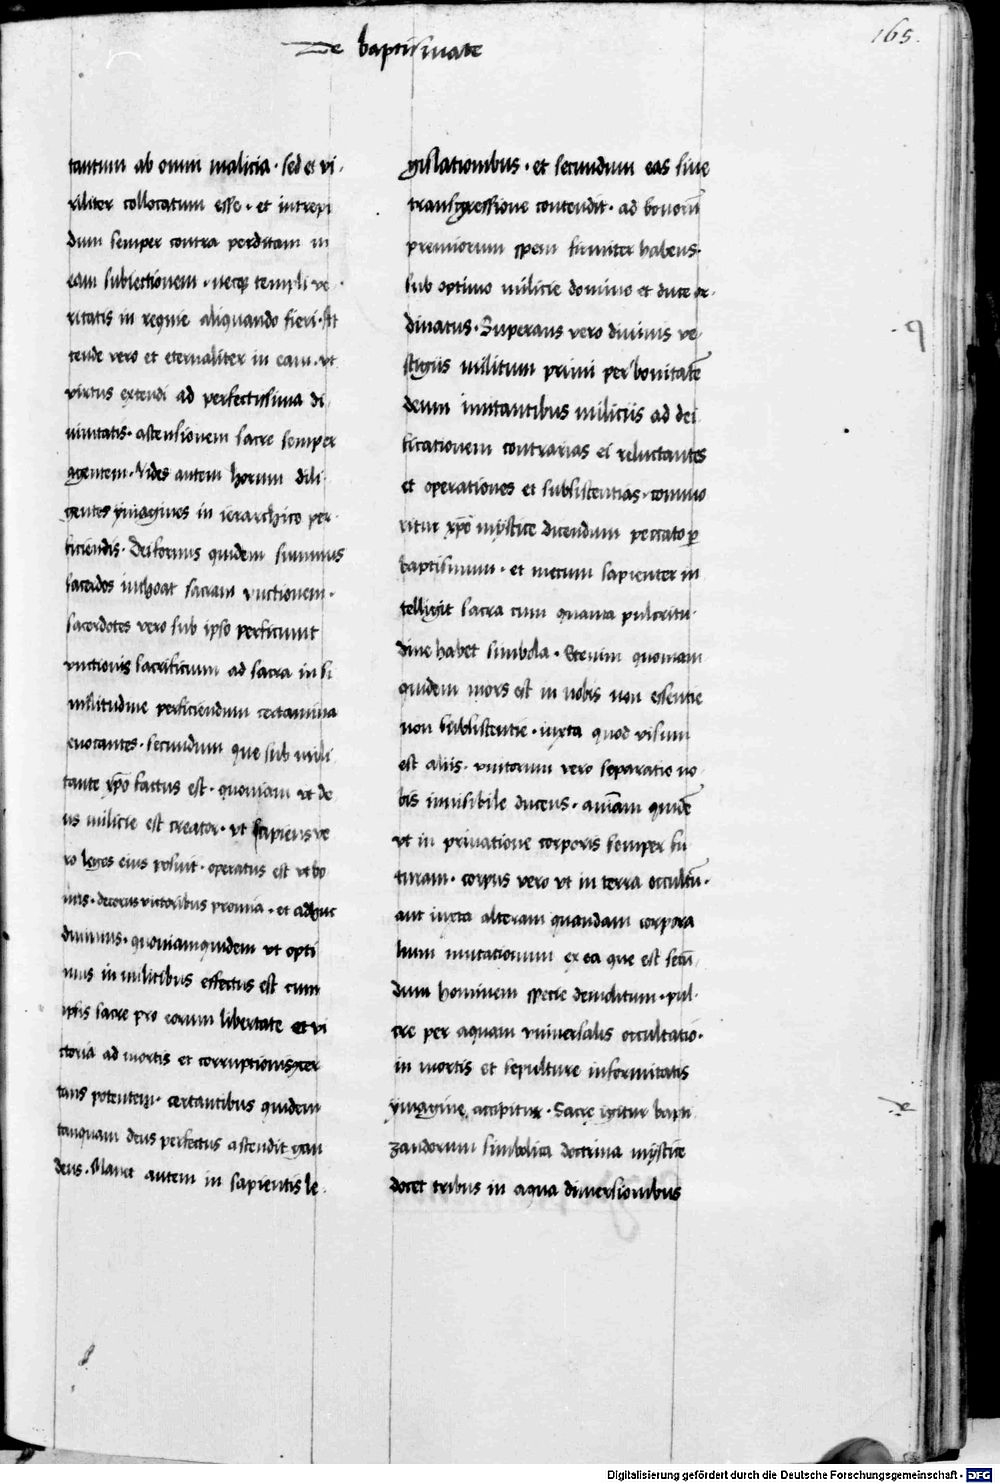 De baptismate
165.
tantum ab omni malicia · sed et vi
riliter collocatum esse · et intrepi
dum semper contra perditam in
eam subiectionem · neqz templi ve
ritatis in requie aliquando fieri · At
tende vero et eternaliter in eam · vt
virtus extendi ad perfectissima di
uinitatis · astensionem sacre semper
agentem · Vides autem horum dili
gentes ymagines in ierarchico per
ficiendis · Deiformis quidem summus
sacerdos inchoat sacram vnctionem ·
sacerdotes vero sub ipso perficiunt
vnctionis sacrificium ad sacra in si
militudine perficiendum certamina
euocantes · secundum que sub mili
tante xp̄o factus est · quoniam vt de
us milicie est creator · vt sapiens ve
ro leges eius posuit · operatus est vt bo
nus · decorus victoribus premia · et adhuc
diuinius · quoniam quidem vt opti
mus in militibus effectus est cum
ipsis sacre pro eorum libertate et vi
ctoria ad mortis et corruptionis cer
tans potentem · certantibus quidem
tanquam deus perfectus astendit gau
dens · Manet autem in sapientis le
gislationibus · et secundum eas sine
transgressione contendit · ad bonorū
premiorum spem firmiter habens ·
sub optimo milicie domino et duce or
dinatus · Superans vero diuinis ve
stigiis militum primi per bonitatē
deum imitantibus miliciis ad dei
ficationem contrarias ei reluctantes
et operationes et subsistentias · commo
ritur xp̄o mystice dicendum peccato ꝑ
baptismum · et mecum sapienter in
telligit sacra cum quanta pulcritu
dine habet simbola · Etenim quoniam
quidem mors est in nobis non essentie
non subsistentie · iuxta quod visum
est aliis · vnitorum vero separatio no
bis inuisibile ducens · animam quidē
vt in priuatione corporis semper fu
turam · corpus vero vt in terra occultū ·
aut iuxta alteram quandam corpora
lium mutationum ex ea que est secū
dum hominem specie demolitum · pul
cre per aquam vniuersalis occultatio ·
in mortis et sepulture informitatis
ymagine accipitur · Sacre igitur bapti
zandorum simbolica doctrina mystice
docet tribus in aqua dimersionibus
Digitalisierung gefördert durch die Deutsche Forschungsgemeinschaft - DFG